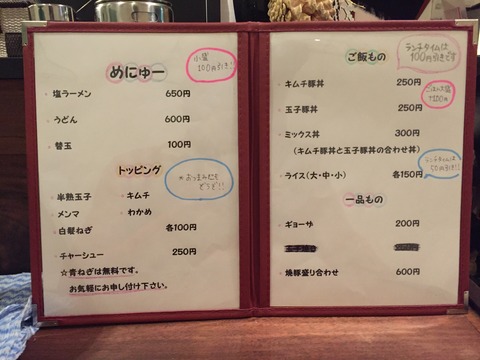 めにゅー
小盛
100円引き!!
塩ラーメン 650円
うどん 600円
替玉 100円
トッピング
*おつまみにも
どうぞ!!
半熟玉子 キムチ
メンマ わかめ
白髪ねぎ 各100円
チャーシュー 250円
☆青ねぎは無料です。
お気軽にお申し付け下さい。
ご飯もの
ランチタイムは
100円引きです
キムチ豚丼 250円
ごはん大盛
+100円
玉子豚丼 250円
ミックス丼 300円
(キムチ豚丼と玉子豚丼の合わせ丼)
ランチタイムは
50円引き!!
ライス(大・中・小) 各150円
一品もの
ギョーザ 200円
焼豚盛り合わせ 600円